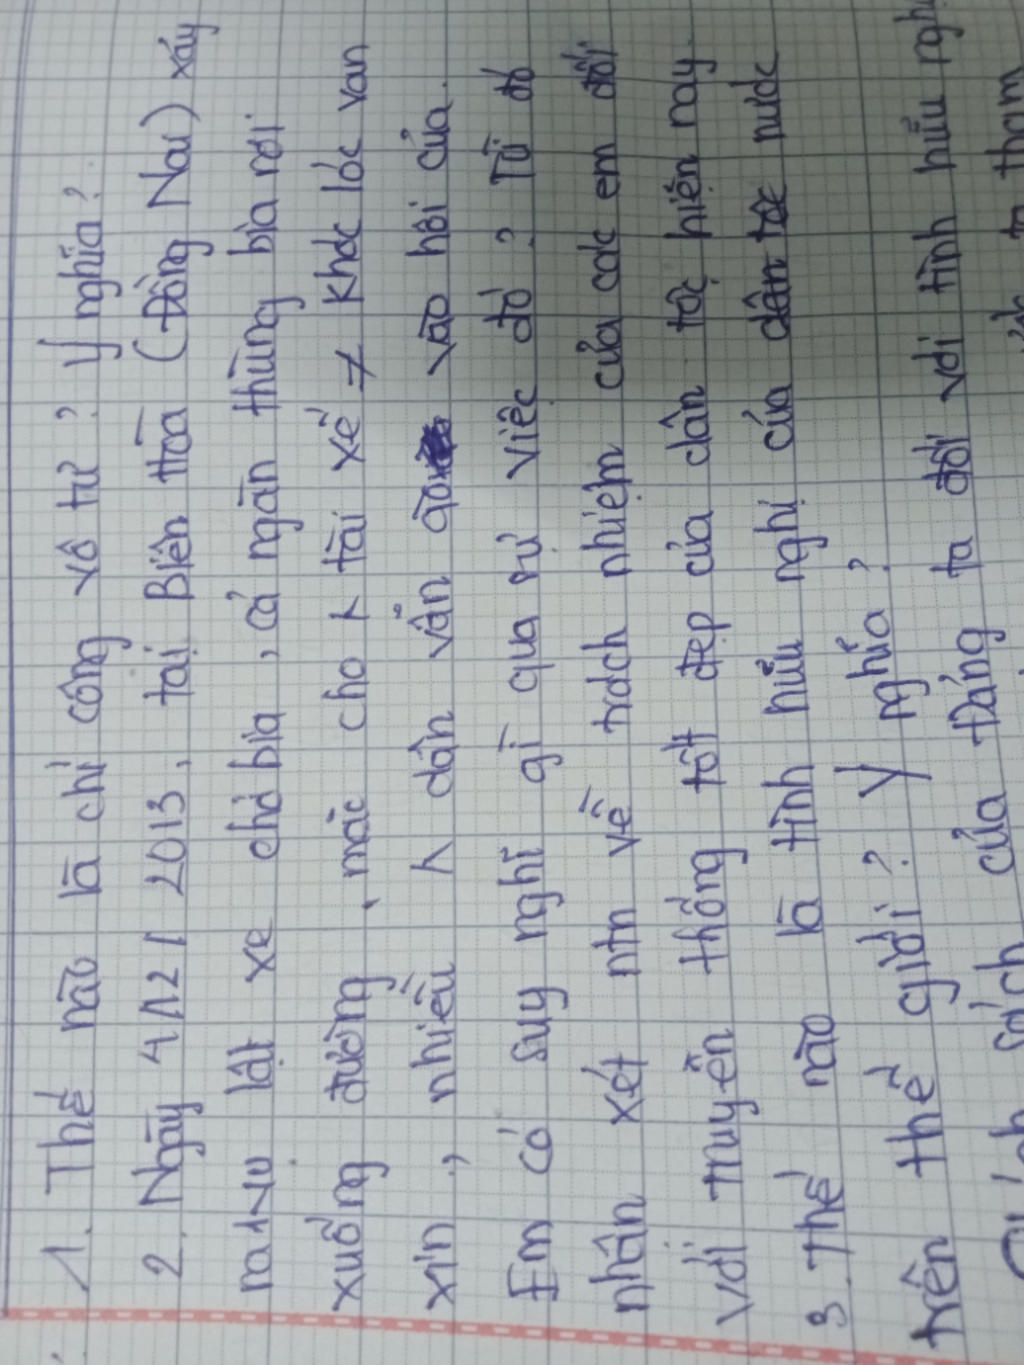 1. Thế nào là chí công vô tư? Ý nghĩa?
2. Ngày 4/12/2013, tại Biên Hòa (Đồng Nai) xảy
ra 1 vụ lật xe chở bia, cả ngàn thùng bia rơi
xuống đường, mặc cho tài xế khóc lóc van
xin, nhiều dân vẫn vào hôi của.
Em có suy nghĩ gì qua sự việc đó? Từ đó
nhân xét ntn về trách nhiệm của các em đối
với truyền thống tốt đẹp của dân tộc hiện nay.
3. Thế nào là tình hữu nghị của dân tộc nước
trên thế giới? Ý nghĩa?
sách của Đảng ta đối với tình hữu nghị
ta tham